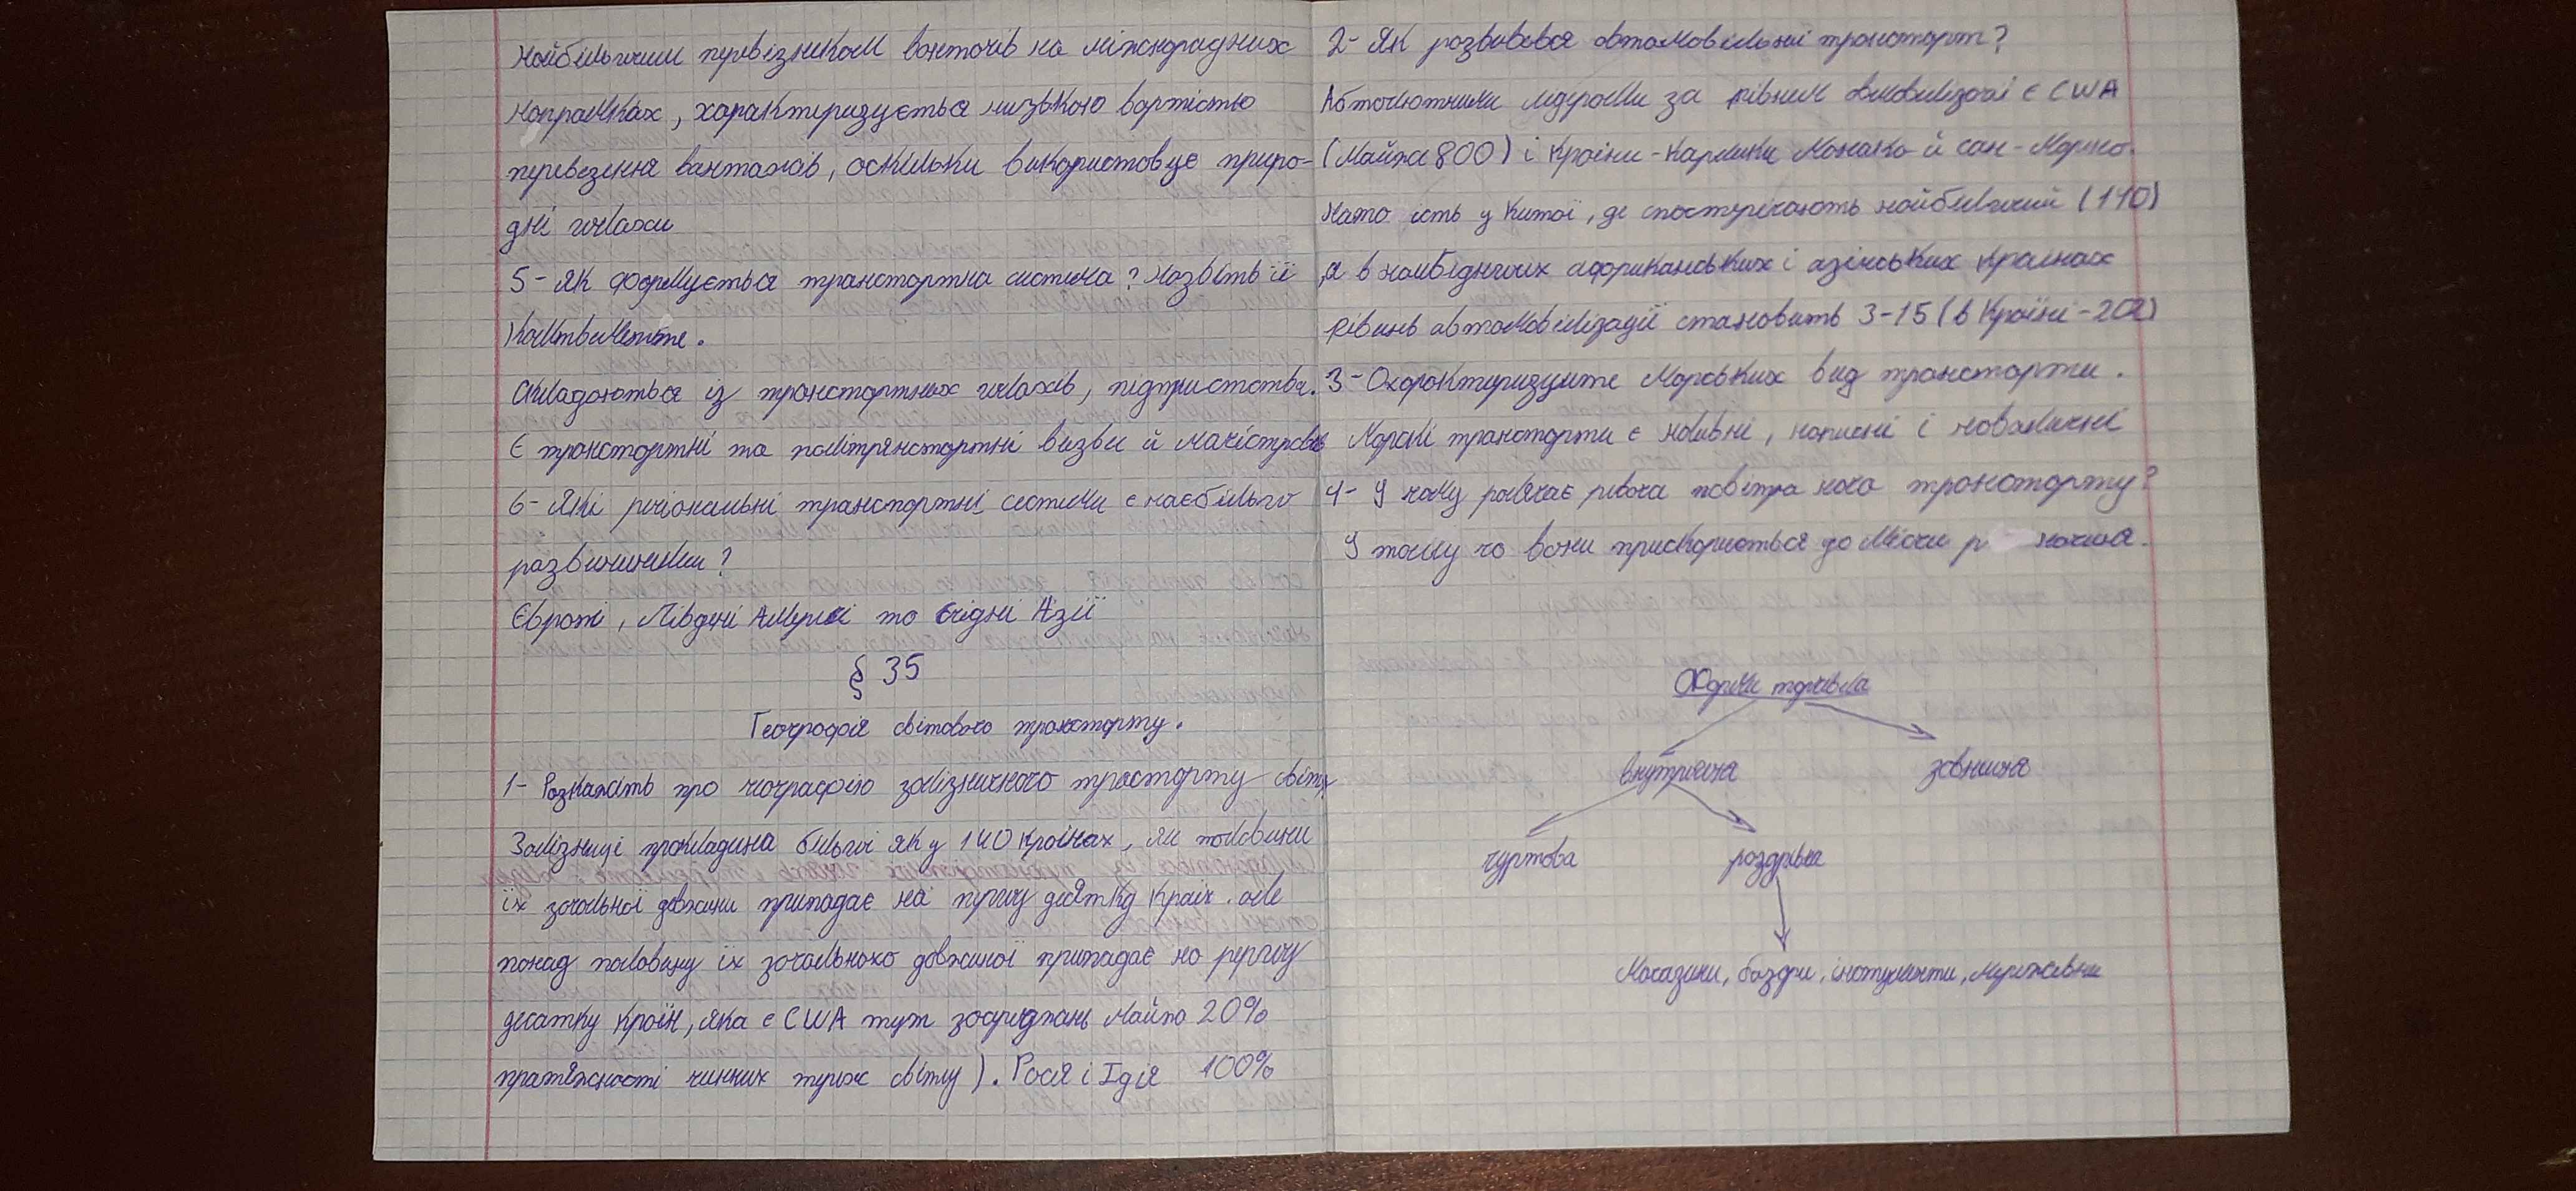 Найбільшим перевізником вонточів на міжнорадних
нопрамках, характеризується низькою вортістю
перевезення вантажів, оскільки використовує приро-
дні шлахи
5 - Як формується транспортна система? Назвіть її
складоюлься із транспортних шлахів, підприєтства.
Є транспортні та политранспортні визви й магістровь
6 - Які регіональні транспортні системи є наєбільго
развинини?
Європі, Південі Америкі то східні Азії
§ 35
Географія світового транспорту.
1 - Розкажіть про географію залізничного траспорту світу
Залізниці прокладина більш як у 140 Країнах, половини
їх зочольної довжини припадає на першу десятку Країн. але
понад половину їх зочольного довжиної припадає но першу
десатку Країн, яка є США тут зосириджань майжо 20%
пратяжності чинних мериж світу). Росія і Ідія 100%
2 - Як розвивався автомобільний транспорт?
Абточютними лідероми за рівним є США
(майже 800) і Країни-Карлики Монако й сан-Марино.
Мато ість у Китої, де спостерігають найбильший (110)
,а в наибіднших африканських і азіських Країнах
рівинь автомобілізації становить 3-15 (в Країні - 202)
3 - Охорактеризуите Морських вид транспорти.
Морскі транспорти є наливні, написні і
4 - У чому повітра ного транспорту?
У тому чо вони прискориється до Місчи
Форми торгівла
внутрішна зовнишна
гуртова роздрібна
Мосазини, боздри,